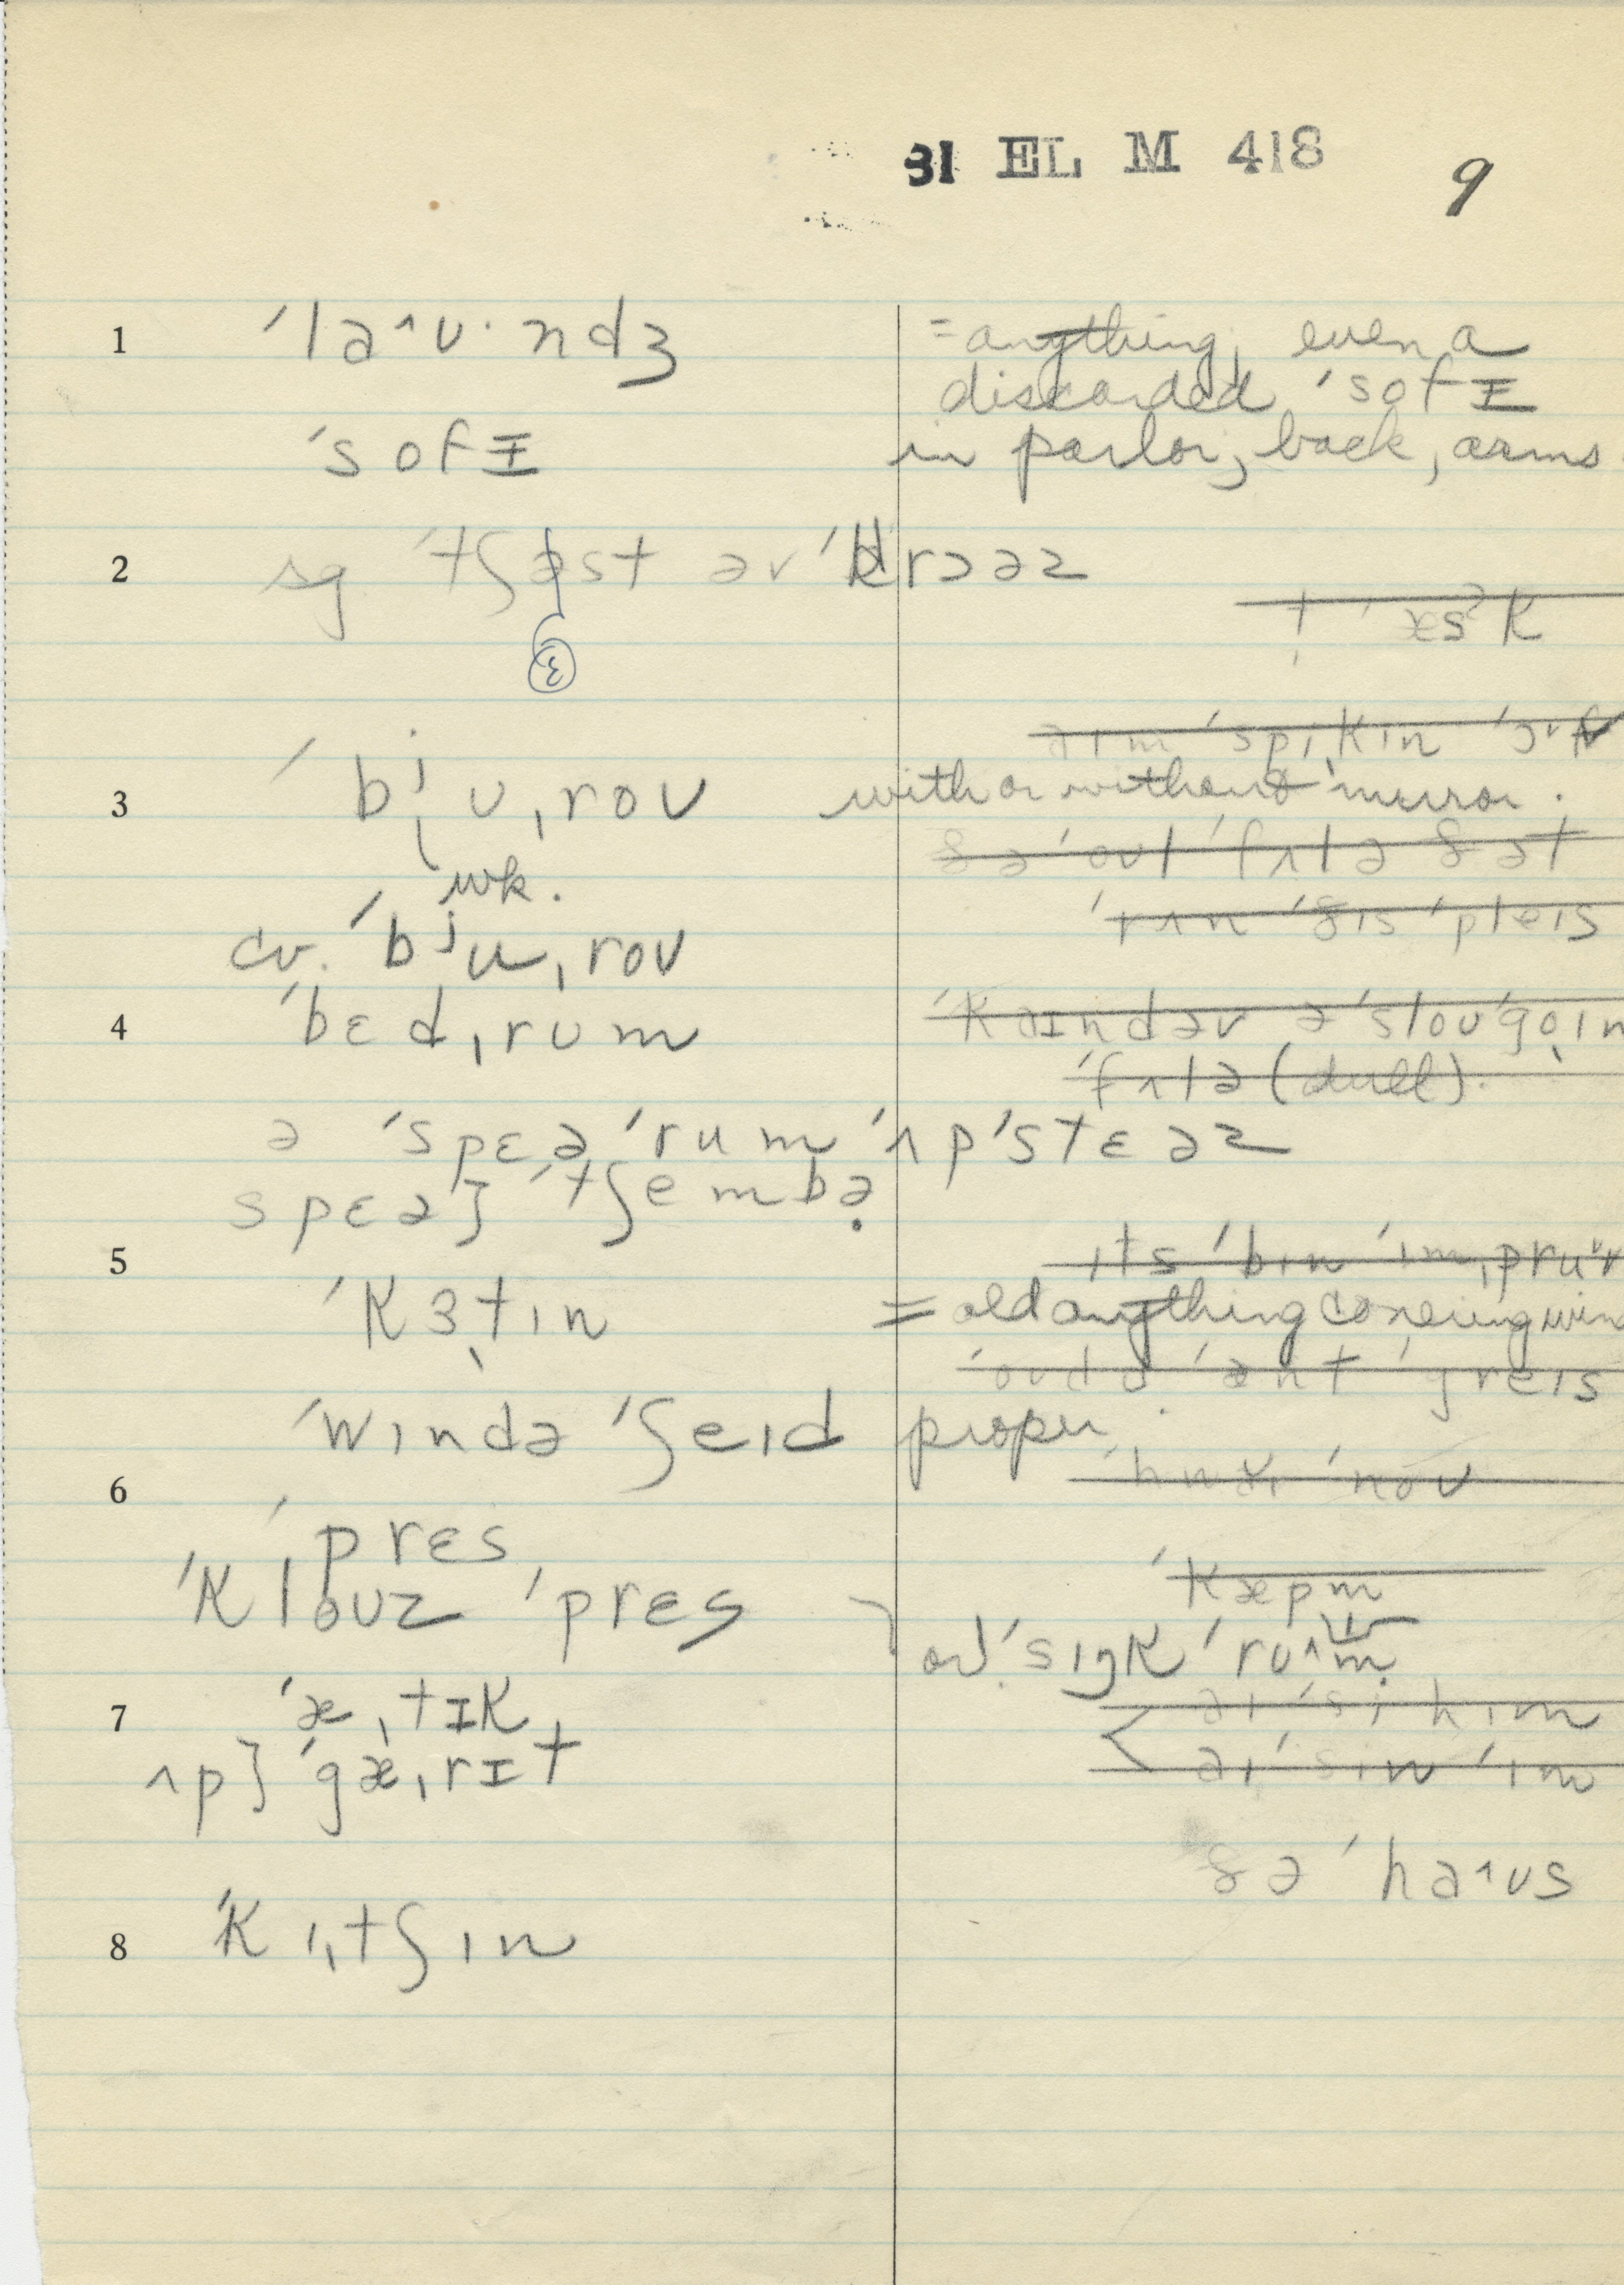 31 EL M 418 9
1 ˈlaˆʊ·ndʒ =anything, even a
discarded ˈsofɪ
ˈsofɪ in parlor, back, arms
2 sg ˈtʃəst əv ˈdrɔəz
ɛ
æsˀk
əɪm ˈspikɪn
3 ˈbjʊˌroʊ with or without mirror.
wk.
ðə ˈoʊl ˈfʌlə ðət
cv. ˈbjuˌroʊ ˈrʌn ˈðɪs ˈpleɪs
4 ˈbɛdˌrum ˈkaɪndəv ə ˈsloʊ ˈgoɪn
ˈfʌlə (dull).
ə ˈspɛə ˈrum ˈʌpˈstɛəz
spɛə] ˈtʃembə
5 ɪts ˈbɪn ˈɪmˌpruv
ˈkɜtɪn = old anything covering win
ˈgreɪs
ˈwɪndə ˈʃeɪd proper
6 ˈnoʊ
ˈprɛs
ˈkloʊz ˈprɛs ˈkæpm
ˈsɪŋk ˈruˆm
7 ˈæˌtɪk
aɪ ˈsi hɪm
ʌp] ˈgæˌrɪt aɪ ˈsin ˈɪm
ðə ˈhaˆʊs
8 ˈkɪˌtʃɪn